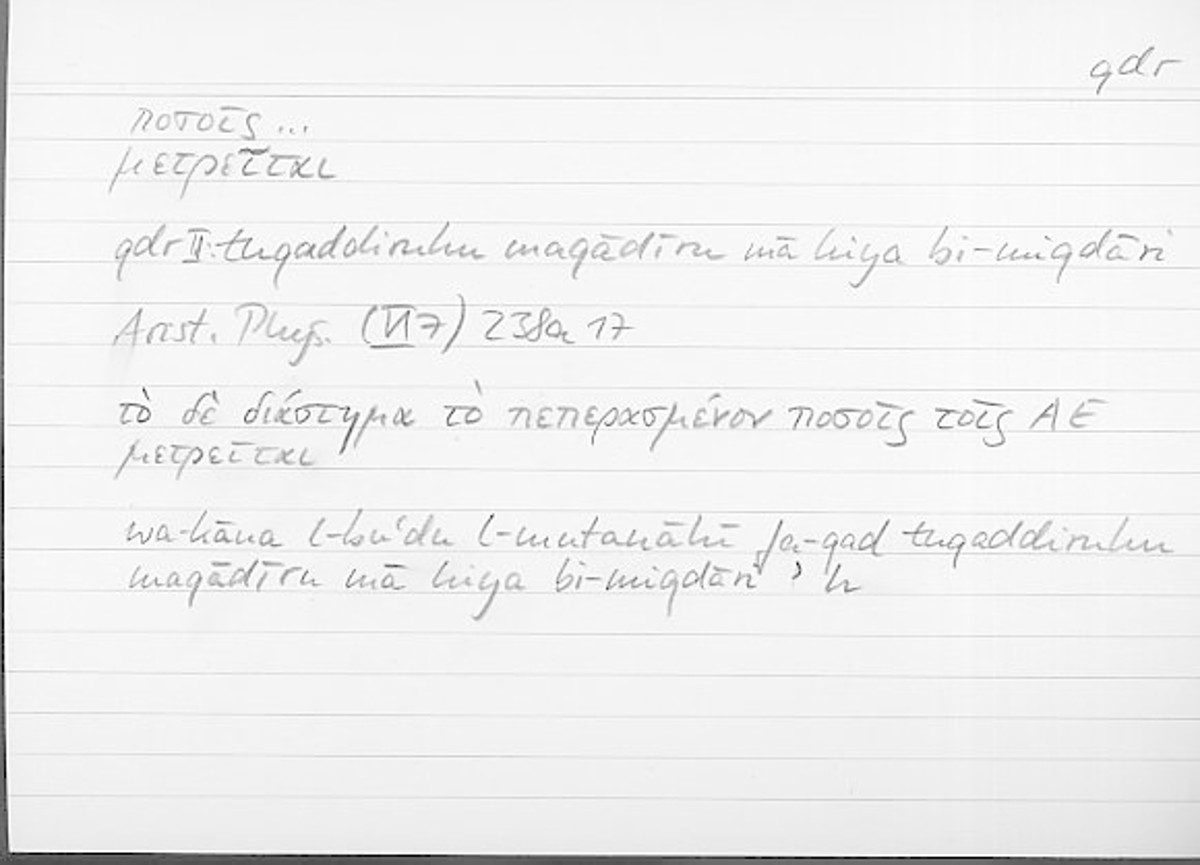 qdr
ποσοῖς ...
μετρεῖται
qdr II: tuqaddiruhu maqādīru mā hiya bi-miqdāri
Arist. Phys. (VI 7) 238a 17
τὸ δὲ διάστημα τὸ πεπερασμένον ποσοῖς τοῖς ΑΕ
μετρεῖται
wa-kāna l-buʿdu l-mutanāhī fa-qad tuqaddiruhu
maqādīru mā hiya bi-miqdāri ʾ h